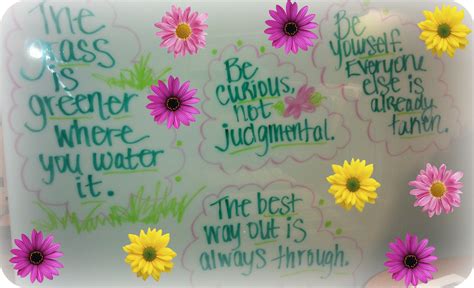 The
grass
is
greener
where
you water
it.
Be
curious,
not
judgmental.
Be
yourself.
Everyone
else is
already
taken.
The best
way out is
always through.